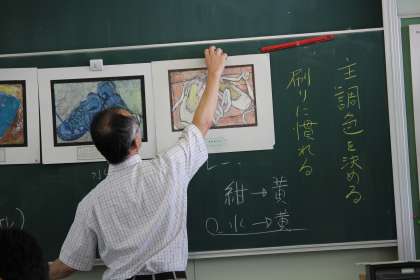 主調色を決める
刷りに慣れる
紺→黄
水→黄